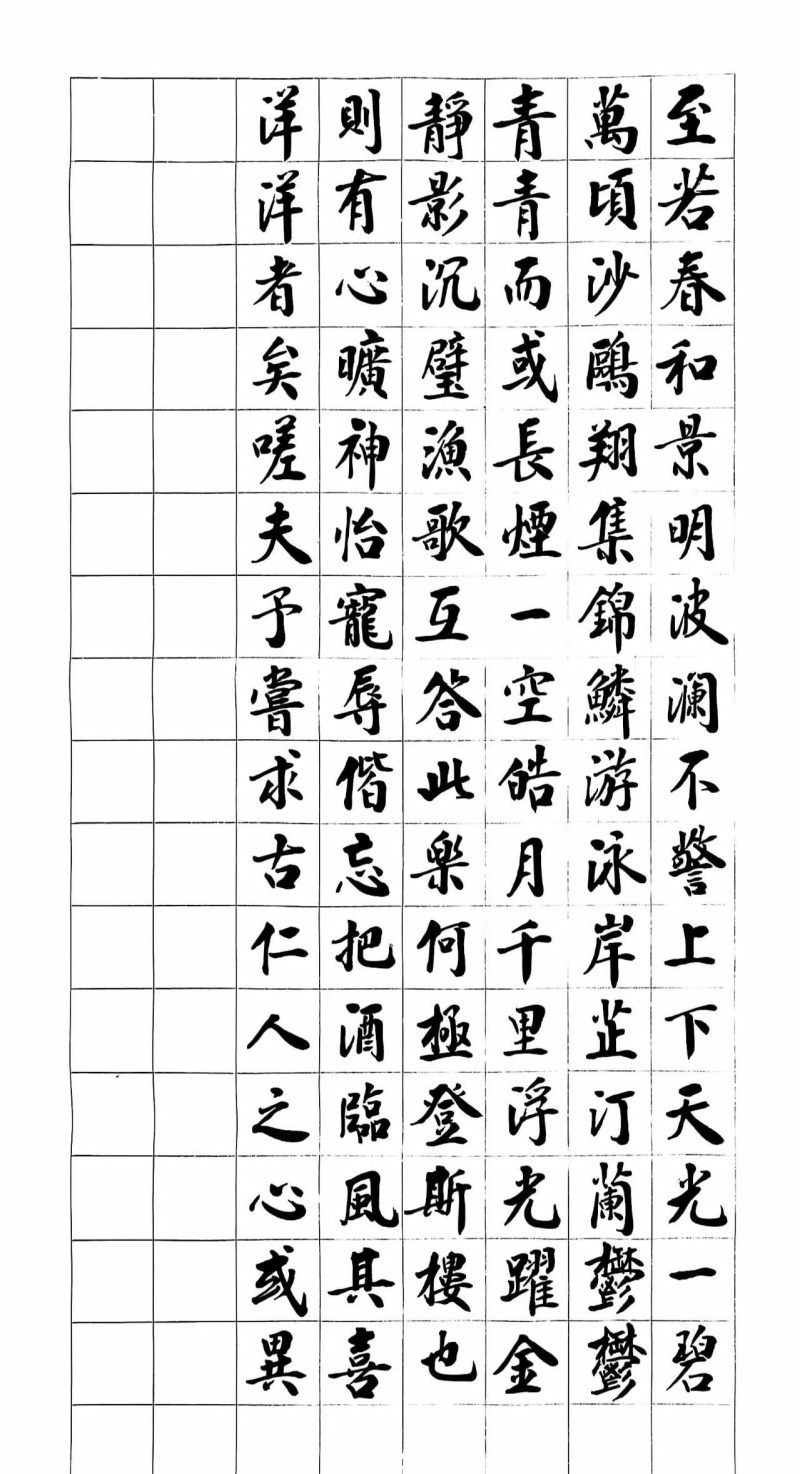 至若春和景明波澜不驚上下天光一碧
萬頃沙鷗翔集錦鱗游泳岸芷汀蘭鬱鬱
青青而或長煙一空皓月千里浮光躍金
靜影沉璧漁歌互答此樂何極登斯樓也
則有心曠神怡寵辱偕忘把酒臨風其喜
洋洋者矣嗟夫予嘗求古仁人之心或異